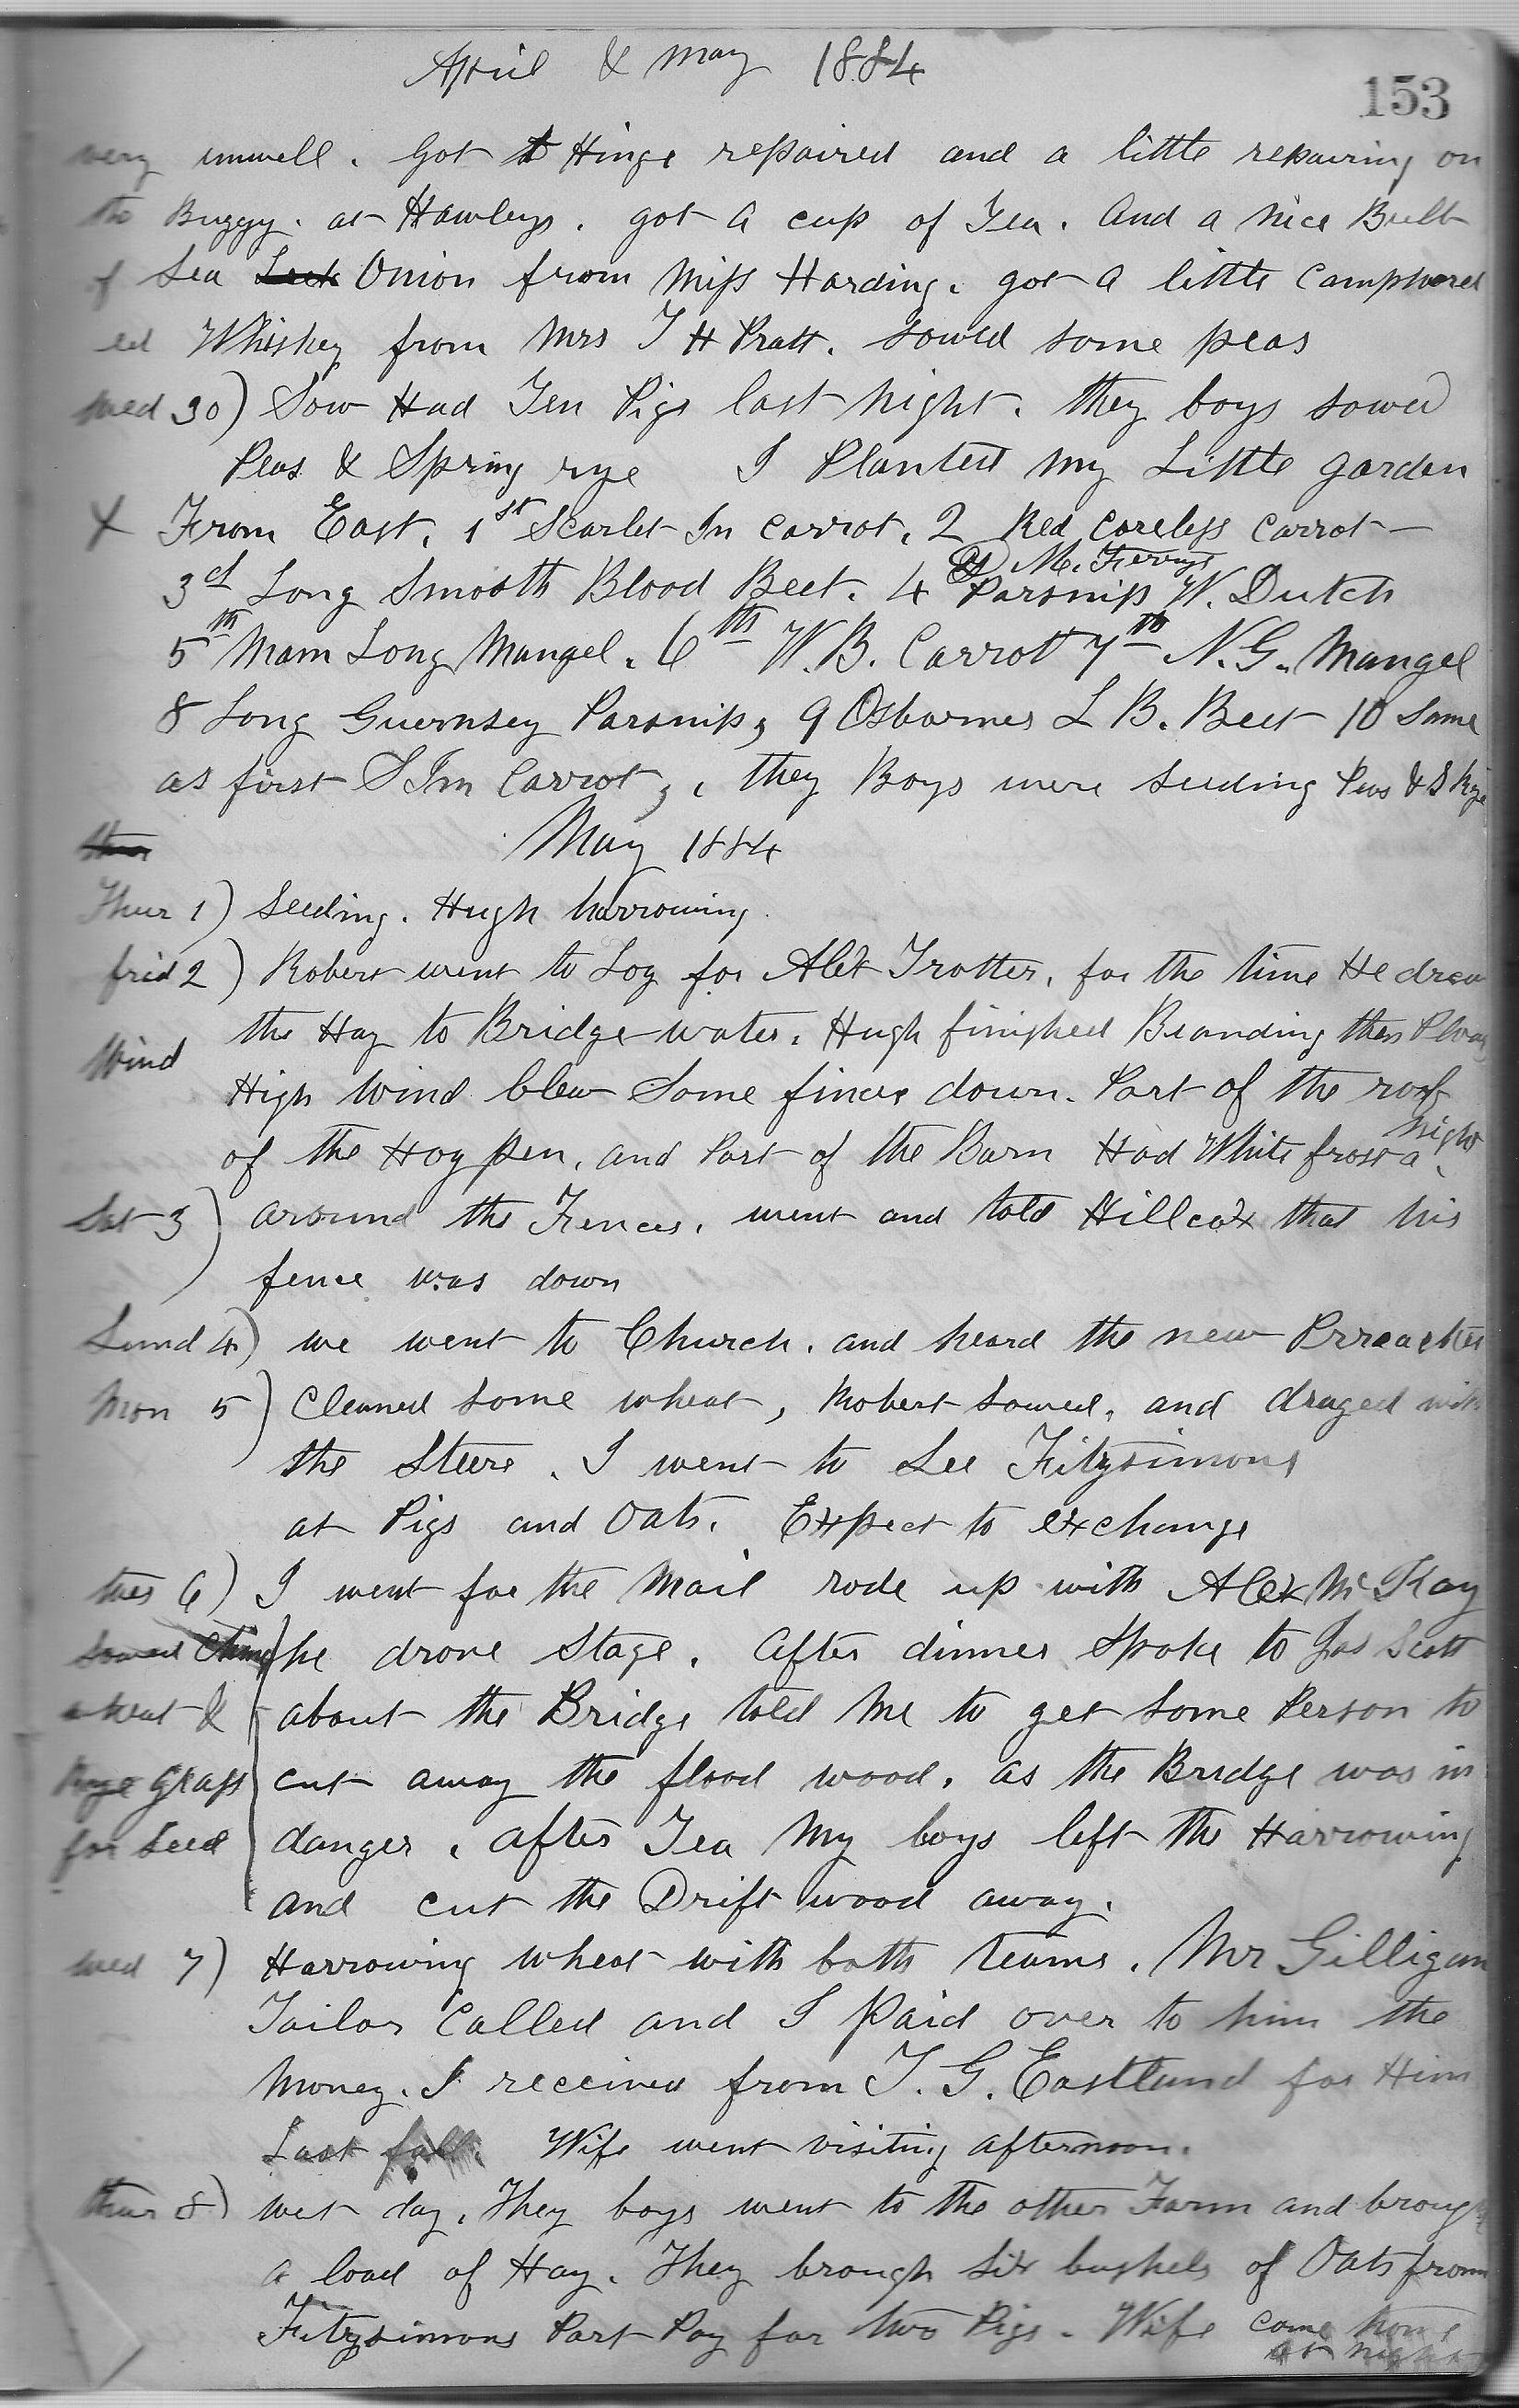 April & May 1884
153
very unwell. Got Hinge repaired and a little repairing on
the Buggy. at Hawleys. got a cup of Tea. And a nice Bulb
of Sea Leek Onion from Miss Harding. got a little Camphered
ed Whiskey from Mrs T H Pratt. sowed some peas
Wed 30) Sow Had Ten Pigs last night. they boys sowed
Peas & Spring rye I Planted my Little garden
X From East. 1st Scarlet In carrot. 2 Red Coreless carrot
D M. Ferrys
3d Long Smooth Blood Beet. 4 Parsnip W. Dutch
5th Mam Long Mangel. 6th W.B. Carrot 7th N.G. Mangel
8 Long Guernsey Parsnip, 9 Osbornes L B. Beet 10 Same
as first S Im Carrot, they Boys were seeding Peas & S Rye
May 1884
Thur 1) Seeding. Hugh harrowing
frid 2) Robert went to Log for Alex Trotter, for the time He drew
the Hay to Bridgewater. Hugh finished Branding then Plow
Wind
High wind blew Some fince down. Part of the roof
of the Hog pen, and Part of the Barn Had White frost a night
Sat 3) around the Fences. went and told Hillcox that his
fence was down
Sund 4) we went to Church. and heard the new Prreacher
Mon 5) Cleaned some wheat, Robert Sowed, and draged with
the Steers. I went to See Fitzsimons
at Pigs and Oats. Expect to exchange
tues 6) I went for the Mail rode up with Alex McKay
Sowed he drove Stage. After dinner Spoke to Jas Scott
wheat & about the Bridge told Me to get some Person to
Grass cut away the flood wood. as the Bridge was in
for Seed danger. after Tea My boys left the Harrowing
and cut the Drift wood away.
Wed 7) Harrowing wheat with both teams. Mr Gilligan
Tailor Called and I Paid over to him the
Money. I received from T. G. Eastland for Him
Last fall. Wife went visiting afternoon.
thur 8) wet day. They boys went to the other Farm and brough
a load of Hay. They brough Six bushels of Oats from
Fitzsimons Part Pay for two Pigs. Wife came home
at night